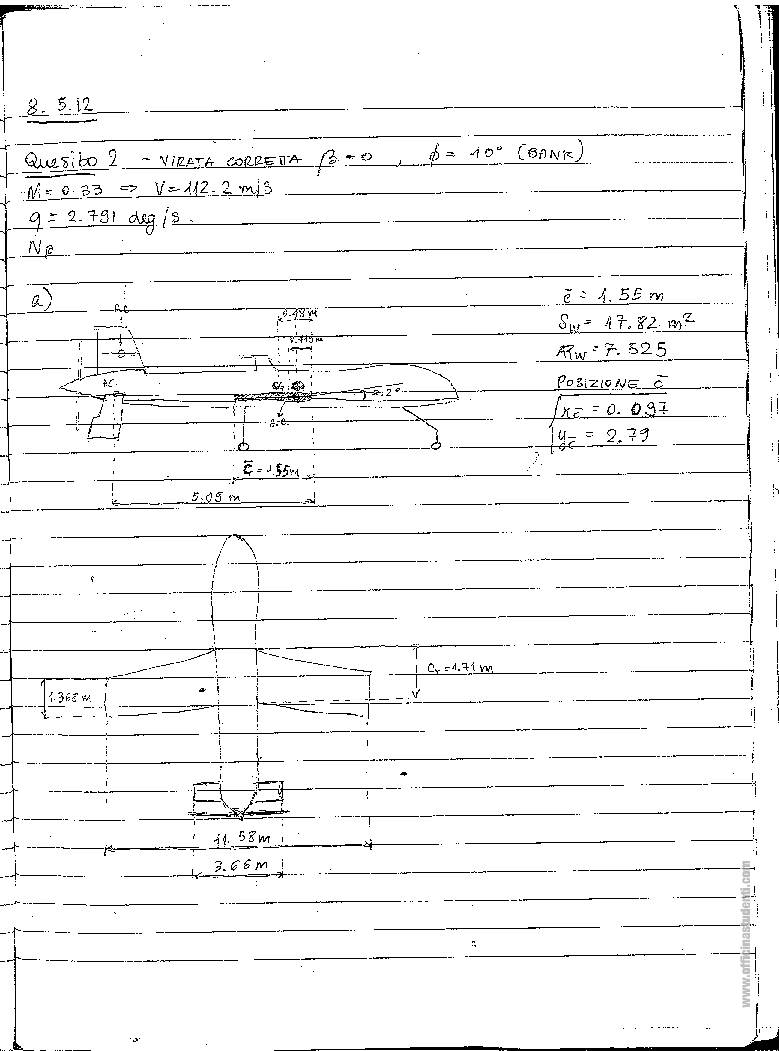 8. 5.12
Quesito 2 - VIRATA CORRETTA β = 0 , ϕ = 10° (BANK)
M = 0.33 ⇒ V = 112.2 m/s
q = 2.791 deg/s.
a)
c̄ = 1.55 m
S_W = 17.82 m²
AR_W = 7.525
POSIZIONE c̄
x_c̄ = 0.097
y_c̄ = 2.79
A.C.
2°
c̄ = 1.55m
5.05 m
C_r = 1.71 m
1.368 m
11.58 m
3.66 m
www.officinastudenti.com